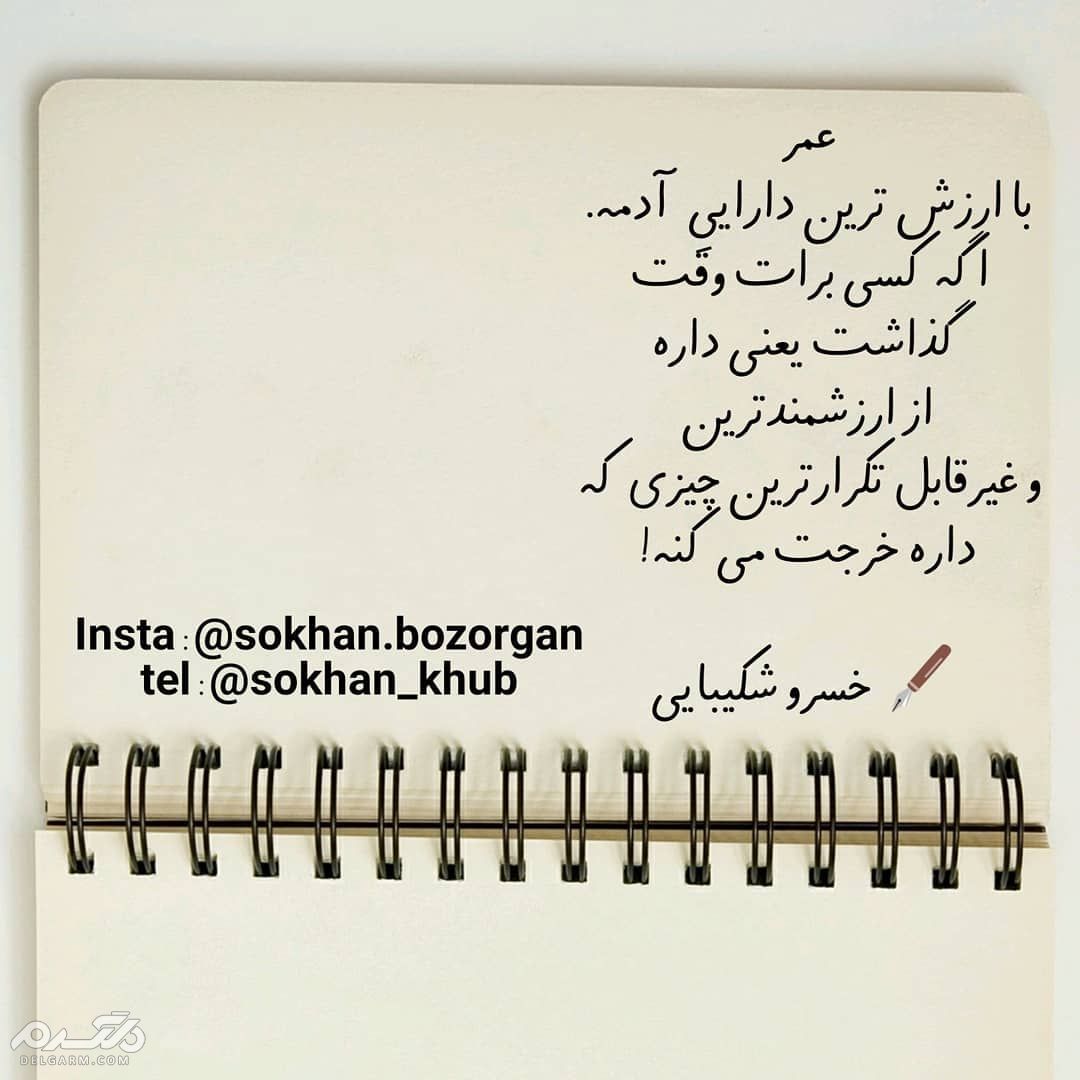 عمر
با ارزش ترین دارایی آدمه.
اگه کسی برات وقت
گذاشت یعنی داره
از ارزشمندترین
و غیرقابل تکرارترین چیزی که
داره خرجت می کنه!
Insta : @sokhan.bozorgan
tel : @sokhan_khub
خسرو شکیبایی
دلگرم
DELGARM.COM